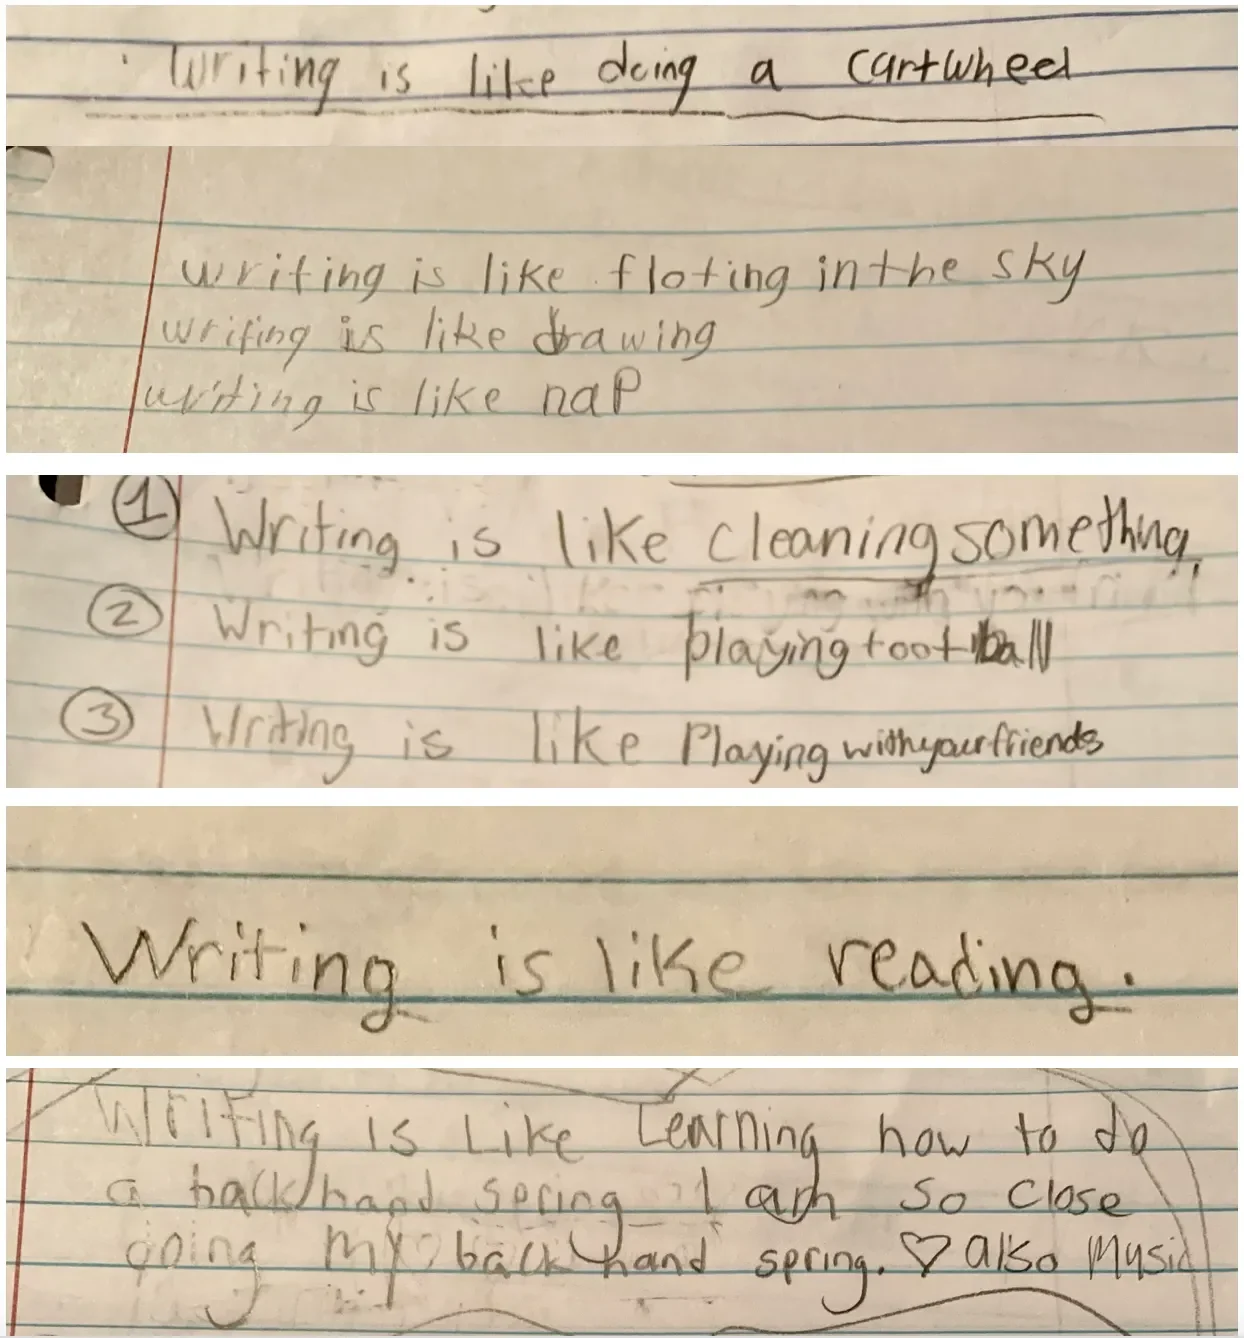 Writing is like doing a cartwheel
writing is like floting in the sky
writing is like drawing
writing is like nap
1 Writing is like cleaning something.
2 Writing is like playing football
3 Writing is like Playing with your friends
Writing is like reading.
Writing is Like Learning how to do
a back hand spring I am so close
going my back hand spring. ♡ also Music